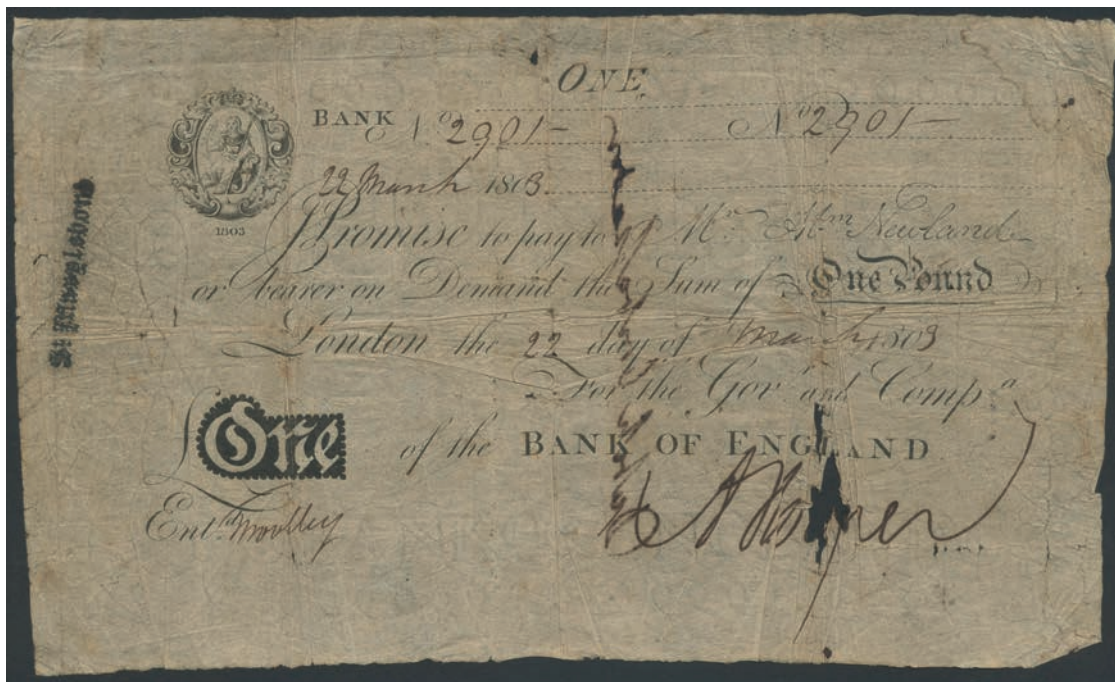 ONE
BANK No 2901— No 2901—
22 March 1803.
1803
Promise to pay to Mr. Abm Newland
or bearer on Demand the Sum of One Pound
London the 22 day of March 1803
For the Govr and Compa
£One of the BANK OF ENGLAND
Entd